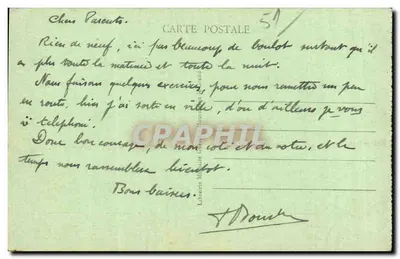 Chers Parents.
CARTE POSTALE
51
Rien de neuf, ici pas beaucoup de boulot surtout qu'il
a plu toute la matinée et toute la nuit.
Nous faisons quelques exercices, pour nous remettre un peu
en route, hier j'ai sorti en ville, d'où d'ailleurs je vous
ai téléphoné.
Donc bon courage, de mon coté et du votre, et le
temps nous rassemblera bientot.
Bons baisers.
CPAPHIL